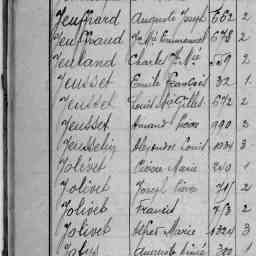 Jeuffrard Auguste Joseph 662 2
Jeuffraud Emmanuel 648 2
Jeuland Charles 229 2
Jeusset Emile François 32 1
Jeusset Louis Gillet 672 2
Jeusset Amand 990 2
Jeusselin Alexandre Louis 1034 3
Jolivet Pierre Marie 240 1
Jolivet Joseph 2
Jolivet Francis 2
Jolivet Alfred Marie 1324 3
Auguste Aimé 300 1